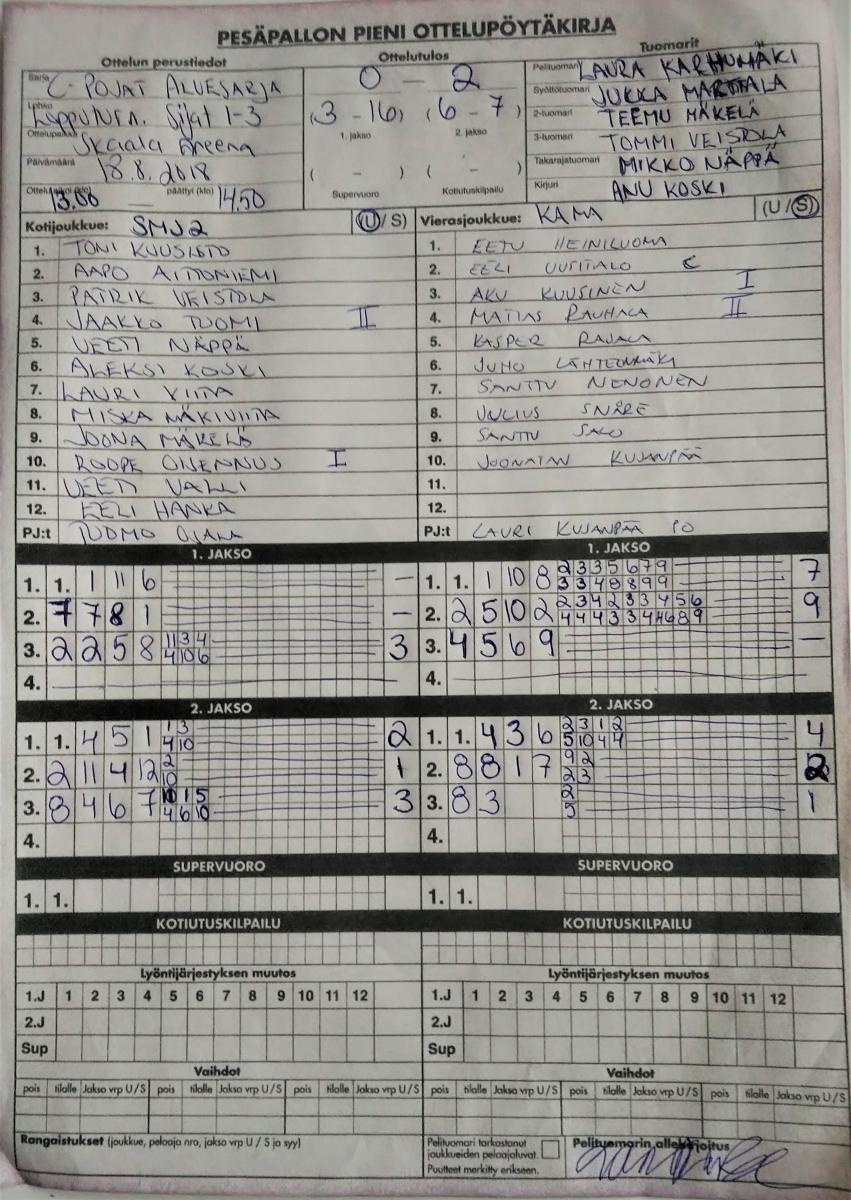 PESÄPALLON PIENI OTTELUPÖYTÄKIRJA
Ottelun perustiedot
Ottelutulos
Tuomarit
Sarja C-POJAT ALUESARJA
0 - 2
Pelituomari LAURA KARHUMÄKI
Lohko Sijat 1-3
(3 - 16) (6 - 7)
Syöttötuomari JUKKA MARTTALA
1. jakso 2. jakso
2-tuomari TEEMU MÄKELÄ
Ottelupaikka Skaala Areena
3-tuomari TOMMI VEISTOLA
Päivämäärä 18.8.2018
( - ) ( - )
Takarajatuomari MIKKO NÄPPÄ
13.00 — päättyi (klo) 14.50
Supervuoro Kotiutuskilpailu
Kirjuri ANU KOSKI
Kotijoukkue: SMJ2 (U/S)
Vierasjoukkue: KAMA (U/S)
1. TONI KUUSISTO
1. EETU HEINILUOMA
2. AAPO AITTONIEMI
2. EELI UUSITALO C
3. PATRIK VEISTOLA
3. AKU KUUSINEN I
4. JAAKKO TUOMI II
4. MATIAS RAUHALA II
5. VEETI NÄPPÄ
5. KASPER RAJALA
6. ALEKSI KOSKI
6. JUHO LÄHTEENMÄKI
7. LAURI VIITA
7. SANTTU NENONEN
8. MISKA MÄKIVIITA
8. JULIUS SNÅRE
9. JOONA MÄKELÄ
9. SANTTU SALO
10. ROOPE OJENNUS I
10. JOONATAN KUJANPÄÄ
11. VEETI VALLI
11.
12. EELI HANKA
12.
PJ:t TUOMO OJALA
PJ:t LAURI KUJANPÄÄ PO
1. JAKSO
1. JAKSO
1. 1. 1 11 6 —
1. 1. 1 10 8 2 3 3 5 6 7 9 7
3 3 4 8 8 9 9
2. 7 7 8 1 —
2. 2 5 10 2 2 3 4 2 3 3 4 5 6 9
4 4 4 3 3 4 4 6 8 9
3. 2 2 5 8 11 3 4 3
4 10 6
3. 4 5 6 9 —
4.
4.
2. JAKSO
2. JAKSO
1. 1. 4 5 1 1 3 2
4 10
1. 1. 4 3 6 2 3 1 2 4
5 10 4 4
2. 2 11 4 12 2 1
10
2. 8 8 1 7 9 2 2
2 3
3. 8 4 6 7 10 1 5 3
4 6 10
3. 8 3 2 1
5
4.
4.
SUPERVUORO
SUPERVUORO
1. 1.
1. 1.
KOTIUTUSKILPAILU
KOTIUTUSKILPAILU
Lyöntijärjestyksen muutos
Lyöntijärjestyksen muutos
1.J 1 2 3 4 5 6 7 8 9 10 11 12
1.J 1 2 3 4 5 6 7 8 9 10 11 12
2.J
2.J
Sup
Sup
Vaihdot
Vaihdot
pois tilalle Jakso vrp U/S pois tilalle Jakso vrp U/S pois tilalle Jakso vrp U/S
pois tilalle Jakso vrp U/S pois tilalle Jakso vrp U/S pois tilalle Jakso vrp U/S
Rangaistukset (joukkue, pelaaja nro, jakso vrp U / S ja syy)
Pelituomari tarkastanut
joukkueiden pelaajaluvat.
Puutteet merkitty erikseen.
Pelituomarin allekirjoitus